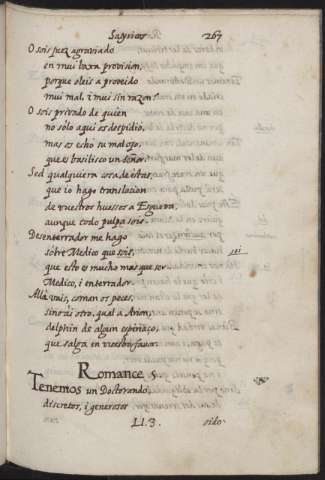 Satyricos 267
O sois juez agraviado
en mui baxa provision,
porque oleis a proveido
mui mal, i mui sin razon?
O sois privado de quien
no solo aqui os despidió,
mas os echó su mal ojo,
que es basilisco un señor.
Sed qualquiera cosa destas,
que io hago translacion
de vuestros huessos a Esgueva,
aunque todo pulpa sois.
Desenterrador me hago
sobre Medico que sois,
que esto es mucho mas que ser
Medico, i enterrador.
Allá vais, coman os peces,
sin otro, qual a Arion,
delphin de algun espinaço,
que salga en vuestro favor.
Romance 5.
Tenemos un Doctorando,
discretos, i generosos
Ll.3. oido